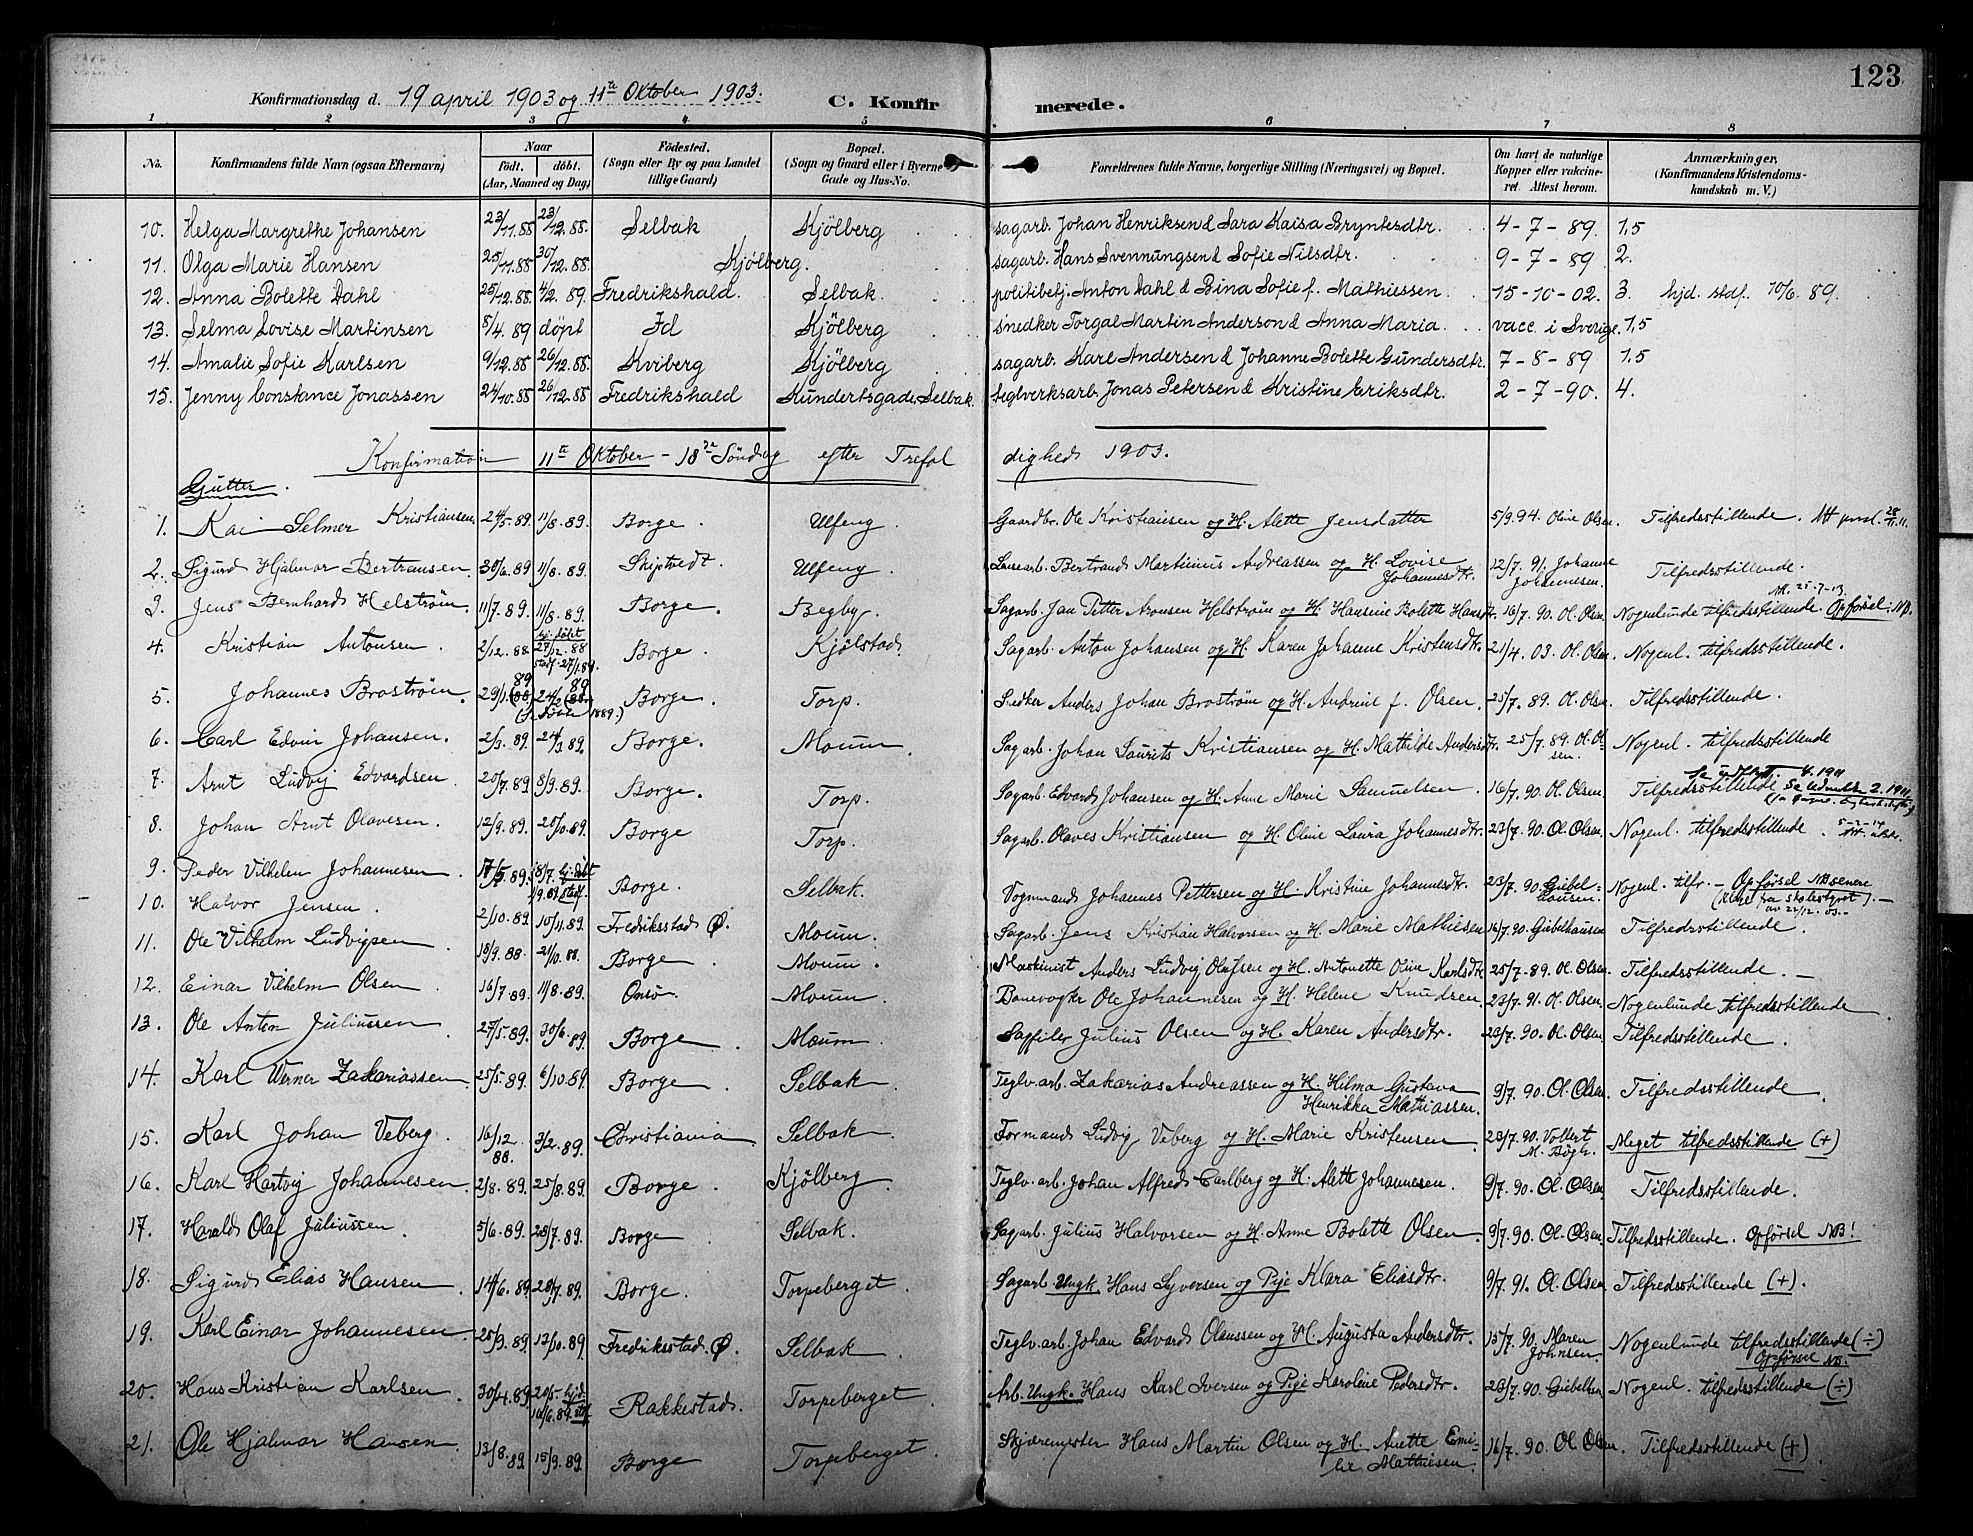 123
Konfirmationsdag d. 19 april 1903 og 11te Oktober 1903. C. Konfirmerede.
1 2 3 4 5 6 7 8
No. Konfirmandens fulde Navn (ogsaa Efternavn) Naar født. døbt. (Aar, Maaned og Dag) Fødested. (Sogn eller By og paa Landet tillige Gaard) Bopæl. (Sogn og Gaard eller i Byerne Gade og Hus-No.) Forældrenes fulde Navne, borgerlige Stilling (Næringsvei) og Bopæl. Om havt de naturlige Kopper eller vakcineret. Attest herom. Anmærkninger. (Konfirmandens Kristendomskundskab m. V.)
10. Helga Margrethe Johansen 23/11.88 23/12.88. Selbak Kjölberg sagarb. Johan Henriksen & Sara Kaisa Bryntesdtr. 4-7-89. 1,5
11. Olga Marie Hansen 25/11.88 30/12.88. Kjölberg. sagarb. Hans Svennungsen & Sofie Nilsdtr. 9-7-89 2.
12. Anna Bolette Dahl 25/12.88. 4/2.89. Fredrikshald. Selbak. politibetj. Anton Dahl & Bina Sofie f. Mathiessen 15-10-02. 3. hjd. stdf. 10/6.89.
13. Selma Lovise Martinsen 8/4.89 döpt Id Kjölberg snedker Torgal Martin Anderson & Anna Maria. vacc. i Sverige. 1,5
14. Amalie Sofie Karlsen 9/12.88 26/12.88. Kviberg Kjölberg sagarb. Karl Andersen & Johanne Bolette Gundersdtr. 7-8-89 1,5
15. Jenny Constance Jonassen 24/10.88 26/12.88 Fredrikshald Kundertsgade, Selbak. teglverksarb. Jonas Petersen & Kristine Eriksdtr. 2-7-90. 4.
Konfirmation 11te Oktober - 18de Söndag efter Trefoldighed 1903.
Gutter.
1. Kai Selmer Kristiansen 24/5.89. 11/8.89. Borge. Ulfeng. Gaardbr. Ole Kristiansen og H. Alette Jensdatter 5/9.94. Oline Olsen. Tilfredsstillende.
2. Sigurd Hjalmar Bertransen. 30/6.89 11/8.89. Skiptvedt. Ulfeng. Bertrand Martinius Andreassen og H. Lovise Johannesdtr. 12/7.91. Johanne Johannesen. Tilfredsstillende.
3. Jens Bernhard Helström. 11/7.89. 11/8.89. Borge. Begby. Sagarb. Jan Petter Aronsen Helström og H. Hansine Bolette Hansdtr. 16/7.90. Ol. Olsen Nogenlunde tilfredsstillende. Opførsel. NB.
4. Kristian Antonsen. 2/12.88. hj. døbt 27/12.88 stadf. 27/1.89. Borge. Kjölstad. Sagarb. Anton Johansen og H. Karen Johanne Kristensdtr. 21/4.03. Ol. Olsen. Nogenl. tilfredsstillende.
5. Johannes Broström. 29/1. (88) 89 24/2 (88 89 1889.) Borge. Torp. Anders Johan Broström og H. Andrine f. Olsen. 25/7.89. Ol. Olsen. Tilfredsstillende.
6. Carl Edvin Johansen. 2/3.89. 24/3.89. Borge. Moum. Sagarb. Johan Laurits Kristiansen og H. Mathilde Andersdtr. 25/7.89. Ol. Olsen. Nogenl. tilfredsstillende
7. Arnt Ludvig Edvardsen 20/7.89 8/9.89. Borge. Torp. Sagarb. Edvard Johansen og H. Anne Marie Samuelsen. 16/7.90. Ol. Olsen. Tilfredsstillende
8. Johan Arnt Olavesen. 12/9.89. 20/10.89. Borge Torp. Sagarb. Olaves Kristiansen og H. Oline Laura Johannesdtr. 23/7.90. Ol. Olsen. Nogenl. tilfredsstillende.
9. Peder Vilhelm Johannesen. 17/5.89. 8/7. hj. døbt 1/9.89. stdf. Borge. Selbak. Vognmand Johannes Pettersen og H. Kristine Johannesdtr. 23/7.90. Giebelhausen. Nogenl. tilfr. - Opførsel NB senere fra skolestyret). - av 22/12.03.
10. Halvor Jensen. 2/10.89 10/11.89. Fredriksstad Ø. Moum. Sagarb. Jens Kristian Halvorsen og H. Marie Mathiesen 16/7.90. Giebelhausen Tilfredsstillende.
11. Ole Vilhelm Ludvigsen 18/9.88. 21/10.88. Borge. Moum. Maskinist Anders Ludvig Olafsen og H. Antonette Oline Karlsdtr. 25/7.89. Ol. Olsen. Tilfredsstillende.
12. Einar Vilhelm Olsen. 16/7.89. 11/8.89. Onsö. Moum Banevogtr Ole Johannesen og H. Helene Knudsen. 23/7.91. Ol. Olsen. Nogenlunde tilfredsstillende
13. Ole Anton Juliussen 27/5.89. 30/6.89. Borge. Moum. Sagfiler Julius Olsen og H. Karen Andersdtr. 23/7.90. Ol. Olsen. Tilfredsstillende.
14. Karl Werner Zakariassen. 25/5.89. 6/10.89. Borge. Selbak. Teglv. arb. Zakarias Andreassen og H. Hilma Gustava Henrikka Mathiassen. 9/7.90. Ol. Olsen. Tilfredsstillende
15. Karl Johan Veberg. 16/12 88. 3/2.89. Christiania Selbak. Formand Ludvig Veberg og H. Marie Kristensen 23/7.90. Volkert M. Bögh. Meget tilfredsstillende (+)
16. Karl Hartvig Johannesen. 2/8.89. 25/8.89. Borge. Kjölberg. Teglv. arb. Johan Alfred Carlberg og H. Alette Johannesen. 9/7.90. Ol. Olsen. Tilfredsstillende.
17. Harald Olaf Juliussen. 5/6.89. 28/7.89. Borge Selbak. Sagarb. Julius Halvorsen og H. Anne Bolette Olsen. 9/7.90. Ol. Olsen. Tilfredsstillende. Opförsel NB!
18. Sigurd Elias Hansen 14/6.89. 28/7.89. Borge. Torpeberget. Sagarb. Ungk. Hans Syversen og Pige Klara Eliasdtr. 9/7.91. Ol. Olsen Tilfredsstillende (+).
19. Karl Einar Johannesen. 25/9.89. 13/10.89. Fredriksstad Ø. Selbak Teglv. arb. Johan Edvard Olaussen og H. Augusta Andersdtr. 15/7.90. Maren Johnsen. Nogenlunde tilfredsstillende (÷) Opførsel NB.
20. Hans Kristian Karlsen. 30/4.89. 20/5. hjd. 10/6.89. stdf. Rakkestad. Torpeberget. Arb. Ungk. Hans Karl Iversen og Pige Karoline Pedersdtr. 23/7.90. Giebelhsn Nogenl. tilfredsstillende (÷)
21. Ole Hjalmar Hansen. 13/8.89. 15/9.89. Borge Torpeberget. Skjæremester Hans Martin Olsen og H. Anette Emilie Mathiesen. 16/7.90. Ol. Olsen. Tilfredsstillende (+)